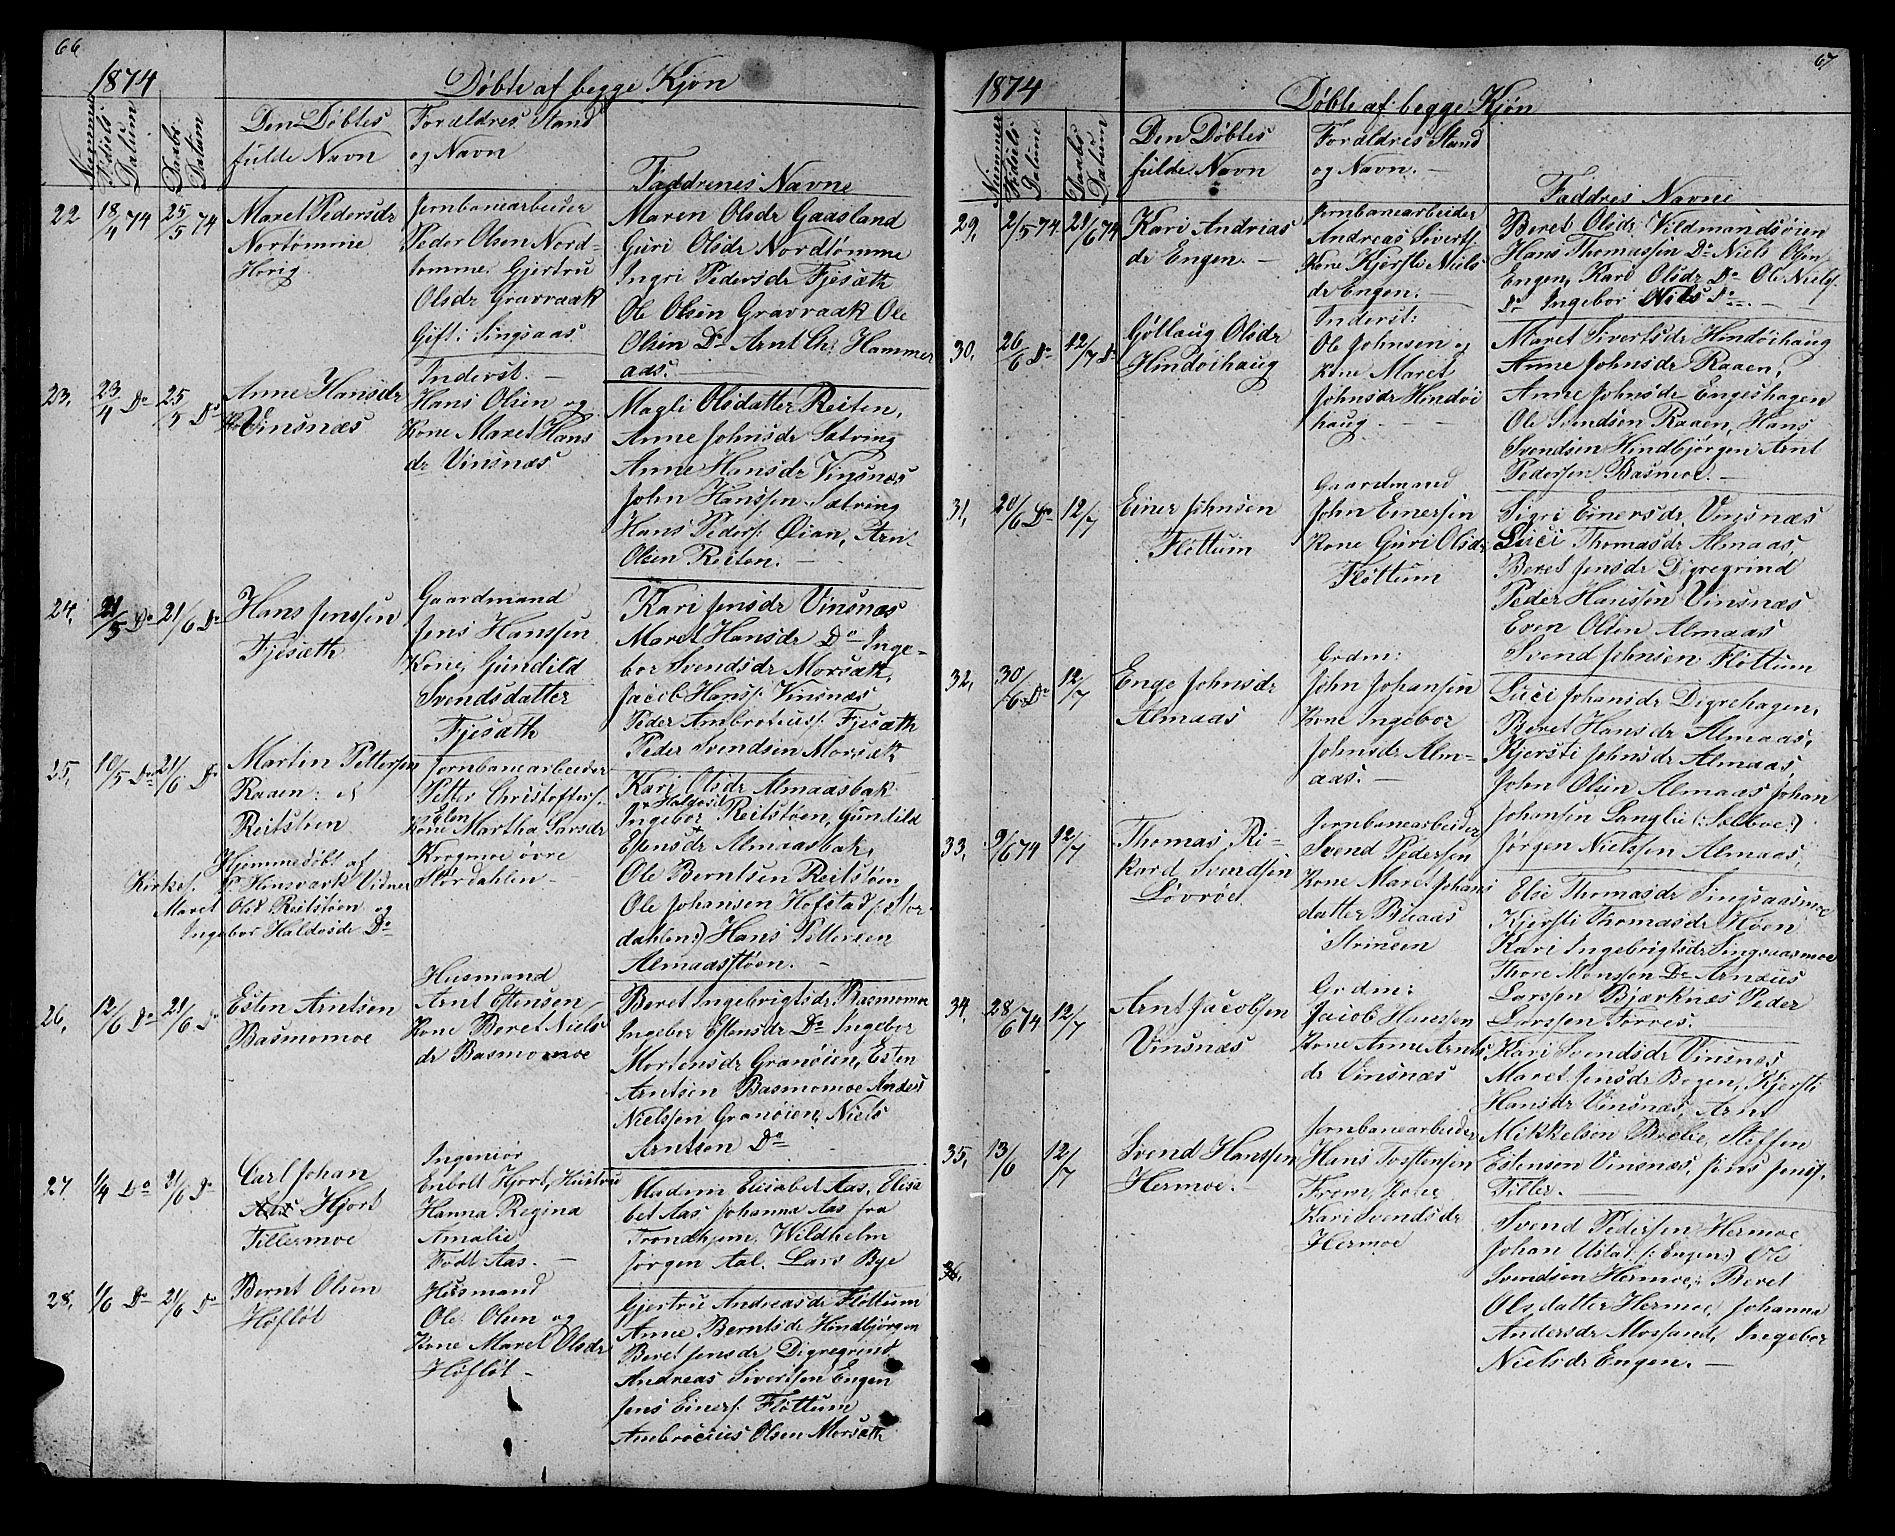 66
1874
Døbte af begge Kjøn
Nummer
Fdsels Datum
Daabs Datum
Den Døbtes
fulde Navn
Foræeldres Stand
og Navn
Faddrenes Navne
22
18/4 74
25/5 74
Maret Pedersdr
Nortømme
Horig
Jernbanearbeider
Peder Olsen Nord-
tømme. Gjertru
Olsdr Gravraak
Gift i Singsaas
Maren Olsdr Gaasland
Guri Olsdr Nordtømme
Ingri Pedersdr Fjesæth
Ole Olsen Gravraak Ole
Olsen Do Arnt Ch. Hammer
aas.
23,
23/4 Do
25/5 Do
Anne Hansdr
Vinsnæs
Inderst.
Hans Olsen og
Kone Maret Hans
dr Vinsnæs
Magli Olsdatter Reiten,
Anne Johnsdr Sætring
Anne Hansdr Vinsnæs
John Hanssen Sætring
Hans Peders. Øian, Arn
Olsen Reiten.
24,
21/5 Do
21/6 Do
Hans Jenssen
Fjesæth.
Gaardmand
Jens Hanssen
Kone, Gunild
Svendsdatter
Fjesæth
Kari Jensdr Vinsnæs
Maret Hansdr Do Inge-
bor Svendsdr Morsæth,
Jacob Hans. Vinsnæs
Peder Ambrotius. Fjesæth
Peder Svendsen Morsæth
25,
10/5 Do
21/6 Do
Martin Pettersen
Raaen: et
Reitstøen
Hjemmedøbt af
Kirkes. P. Hinsværk Vidner
Maret Olsd Reitstøen og
Ingebor Haldosdr Do
Jernbanearbeider
Petter Christoffers.
Kone Martha Larsdr
Krogmoe øvre
Størdahlen
Kari Olsdr Almaasbak
Ingebor Haldosd Reitstøen, Gunild
Esensdr Almaasbak,
Ole Berntsen Reitstøen
Ole Johansen Hofstad (: Stør
dahlen:) Hans Pettersen
Almaasstøen.
26,
12/6 Do
21/6 Do
Esten Arntsen
Basmomoe
Husmand
Arnt Estensen
Kone Beret Niels
dr Basmomoe
Beret Ingebrigtsdr Basmomoe
Ingebor Estensdr Do Ingebor
Mortensdr Granøien, Esten
Arntsen Basmomoe Anders
Nielssen Granøien, Niels
Arntsen Do
27,
1/4 Do
21/6 Do
Carl Johan
Aas Hjort
Tillermoe
Ingeniør
Enbolt Hjort, Hustru
Hanna Regina
Amalie
Født Aas.
Madam Elisabet Aas, Elisa
bet Aas, Johanna Aas fra
Trondhjem, Wildhelm
Jørgen Aal. Lars Bye
28,
1/6 Do
21/6 Do
Bernt Olsen
Høfløt
Husmand
Ole Olsen og
Kone Maret Olsdr
Høfløt
Gjertru Andreasdr Fløttum
Anne Berntsdr Hindbjørgen
Beret Jensdr Digregrind
Andreas Sivertsen Engen
Jens Einers. Fløttum
Ambrocius Olsen Morsæth
67
1874
Døbte af begge Kjøn
Nummer
Fdsels Datum
Daabs Datum
Den Døbtes
fulde Navn
Forældres Stand
og Navn.
Faddres Navne
29,
2/5 74
21/6 74
Kari Andrias
dr Engen.
Jernbanearbeider
Andreas Siverts.
Kone Kjersti Niels
dr Engen.
Beret Olsdr Vildmandsøien
Hans Thomassen Do Niels Olsen
Engen, Kari Olsdr Do Ole Niels.
Do Ingebor Niels Do
30,
26/6 Do
12/7 Do
Gøllaug Olsdr
Hindøihaug
Inderst:
Ole Johnsen og
Kone Maret
Johnsdr Hindøi
haug.
Maret Sivertsdr Hindøihaug
Anne Johnsdr Raaen,
Anne Johnsdr Engeshagen
Ole Svendsen Raaen, Hans
Svendsen Hindbjørgen Arnt
Pedersen Basmoe.
31,
20/6 Do
12/7
Einer Johnsen
Fløttum
Gaardmand
John Einersen
Kone Guri Olsdr
Fløttum
Sigri Einersdr Vinsnæs
Luci Thomasdr Almaas,
Beret Jensdr Digregrind
Peder Hanssen Vinsnæs
Even Olsen Almaas
Svend Johnsen Fløttum
32,
30/6 Do
12/7
Enge Johnsdr
Almaas
Grdm:
John Johansen
Kone Ingebor
Johnsdr Alm-
aas.
Luci Johansdr Digrehagen,
Beret Hansdr Almaas,
Kjersti Johnsdr Almaas,
John Olsen Almaas Johan
Johansen Langlie (: Selboe:)
Jørgen Nielssen Almaas,
33,
9/6 74
12/7
Thomas Ri-
kard Svendsen
Løvrød
Jernbanearbeider
Svend Pedersen
Kone Maret Johans
datter Buaas
Strinden
Else Thomasdr Singsaasmoe
Kjersti Thomasdr Høen
Kari Ingebrigtsdr Singsaasmoe
Thore Monssen Do Arnæus
Larssen Bjærknæs Peder
Larssen Forves.
34,
28/6 74
12/7
Arnt Jacobsen
Vinsnæs
Grdm:
Jacob Hanssen
Kone Anne Arnts
dr Vinsnæs
Kari Svendsdr Vinsnæs,
Maret Jensdr Bogen, Kjersti
Hansdr Vinsnæs, Arnt
Mikkelsen Brelie, Steffen
Estensen Vinsnæs, Jens Jens.
Tiller.
35,
13/6
12/7
Svend Hanssen
Hermoe.
Jernbanearbeider
Hans Torstensen
From, Kone
Kari Svendsdr
Hermoe
Svend Pedersen Hermoe
Johan Ustad (: Engen:) Ole
Svendsen Hermoe, Beret
Olsdatter Hermoe, Johanna
Andersdr Mosand, Ingebor
Nielsdr Engen.
36,